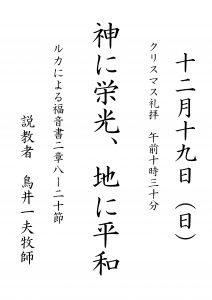 十二月十九日（日）
クリスマス礼拝　午前十時三十分
神に栄光、地に平和
ルカによる福音書二章八ー二十節
説教者　鳥井一夫牧師